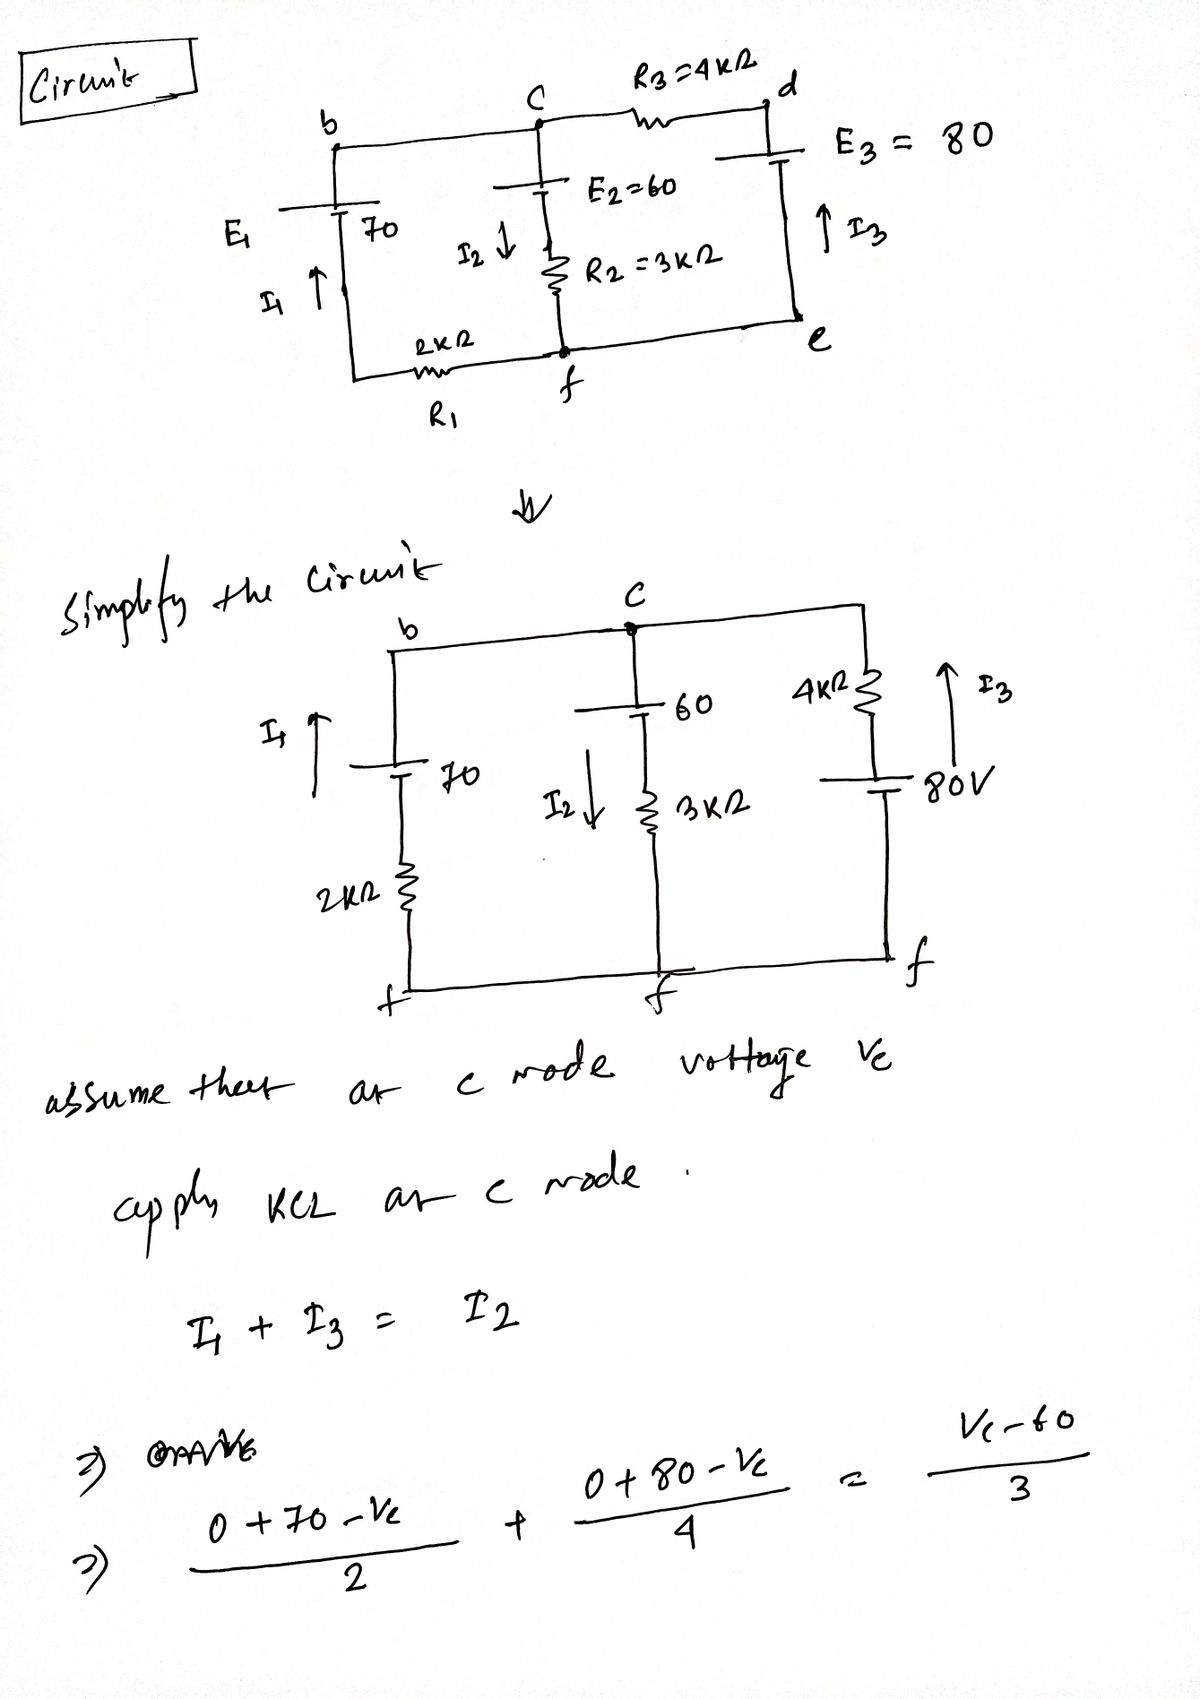 Circuit
R3 = 4KΩ
b
C
d
E3 = 80
E2=60
E1
70
I2
I3
R2 = 3KΩ
I1
2KΩ
e
f
R1
Simplify the circuit
C
b
60
4KΩ
I3
I1
70
80V
I2
3KΩ
2KΩ
f
f
f
assume that at c node voltage Vc
apply KCL at c node.
I1 + I3 = I2
⇒
⇒ (0 + 70 - Vc)/2 + (0 + 80 - Vc)/4 = (Vc - 60)/3